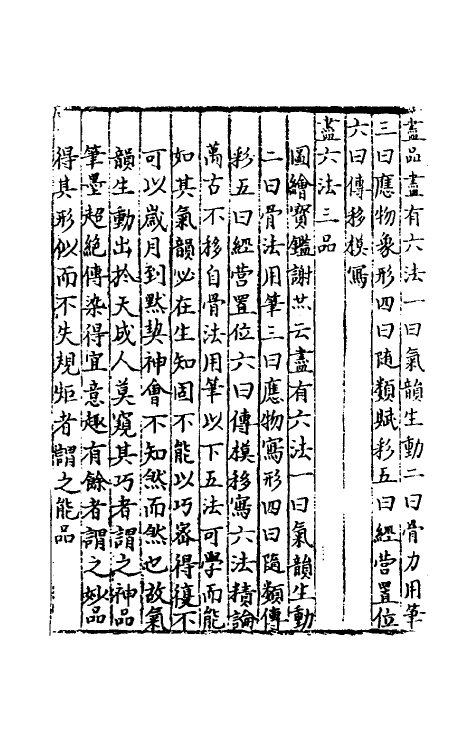 畫品畫有六法一曰氣韻生動二曰骨力用筆
三曰應物象形四曰隨類賦彩五曰經營置位
六曰傳移摸寫
畫六法三品
圖繪寳鑑謝共云畫有六法一曰氣韻生動
二曰骨法用筆三曰應物寫形四曰隨類傳
彩五曰經營置位六曰傳摸移寫六法精論
萬古不移自骨法用筆以下五法可學而能
如其氣韻必在生知固不能以巧宻得復不
可以歲月到黙契神會不知然而然也故氣
韻生動出於天成人莫窺其巧者謂之神品
筆墨超絶傳染得宜意趣有餘者謂之妙品
得其形似而不失規矩者謂之能品